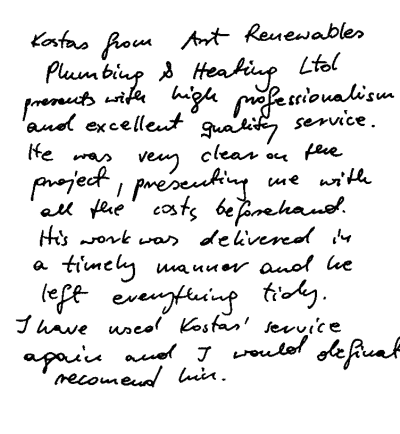 Kostas from Ant Renewables
Plumbing & Heating Ltd
presents with high professionalism
and excellent quality service.
He was very clear on the
project, presenting me with
all the costs beforehand.
His work was delivered in
a timely manner and he
left everything tidy.
I have used Kostas' service
again and I would definat
recomend him.